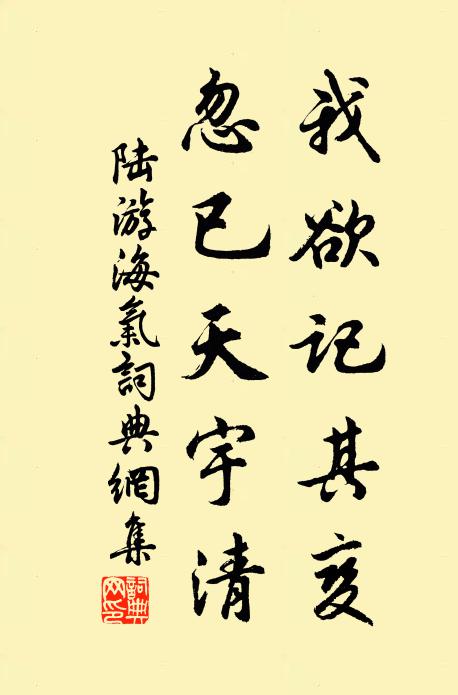 我欲记其变
忽已天宇清
陆游海氣詞典網集
詞典網印